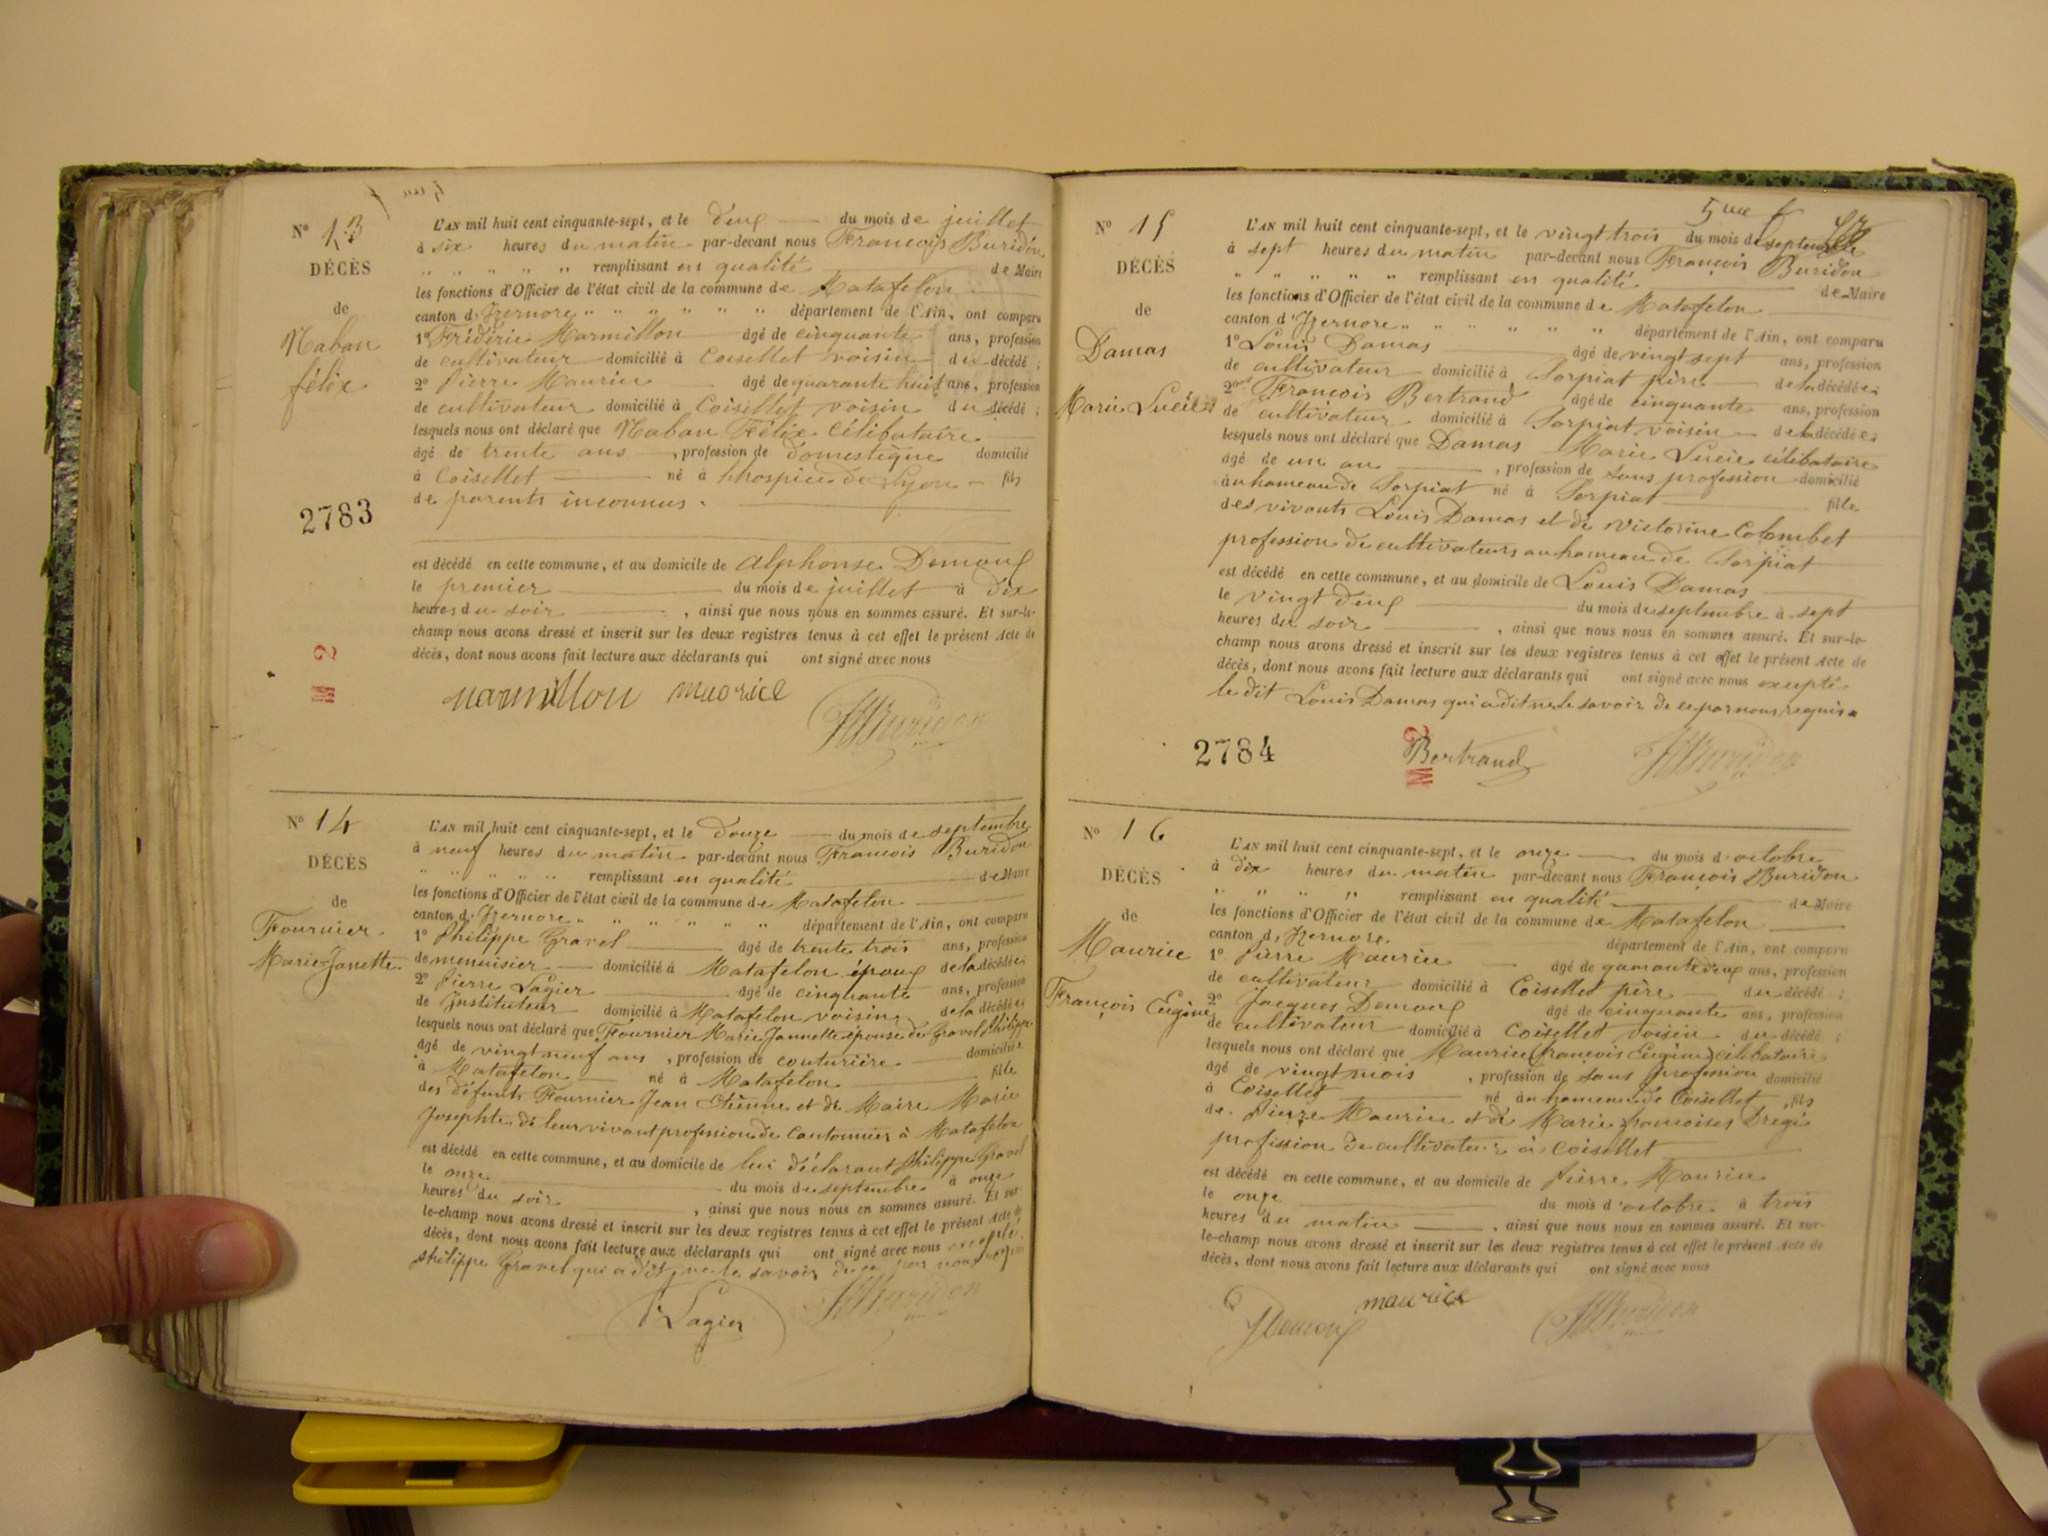 N° 13
DÉCÈS
de
Naban
félix
L'AN mil huit cent cinquante-sept, et le deux du mois de juillet
à six heures du matin par-devant nous François Buridon
" " " " " remplissant en qualité de Maire
les fonctions d'Officier de l'état civil de la commune de Matafelon
canton d'Izernore " " " " " " département de l'Ain, ont comparu
1° Frédéric Marmillon âgé de cinquante ans, profession
de cultivateur domicilié à Coisellet voisin du décédé ;
2° Pierre Maurice âgé de quarante huit ans, profession
de cultivateur domicilié à Coisellet voisin du décédé ;
lesquels nous ont déclaré que Naban Félix célibataire
âgé de trente ans , profession de domestique domicilié
à Coisellet né à l'hospice de Lyon fils
de parents inconnus.
2783
est décédé en cette commune, et au domicile de Alphonse Demoux
le premier du mois de juillet à dix
heures du soir , ainsi que nous nous en sommes assuré. Et sur-le-
champ nous avons dressé et inscrit sur les deux registres tenus à cet effet le présent Acte de
décès, dont nous avons fait lecture aux déclarants qui ont signé avec nous
2 M
marmillon maurice
Buridon
N° 14
DÉCÈS
de
Fournier
Marie Janette
L'AN mil huit cent cinquante-sept, et le douze du mois de septembre
à neuf heures du matin par-devant nous François Buridon
" " " " " remplissant en qualité de Maire
les fonctions d'Officier de l'état civil de la commune de Matafelon
canton d'Izernore " " " " " département de l'Ain, ont comparu
1° Philippe Gravel âgé de trente trois ans, profession
de menuisier domicilié à Matafelon époux de la décédée ;
2° Pierre Lagier âgé de cinquante ans, profession
de Instituteur domicilié à Matafelon voisin de la décédée ;
lesquels nous ont déclaré que Fournier Marie Jannette épouse de Gravel Philippe
âgé de vingt neuf ans , profession de couturière domiciliée
à Matafelon né à Matafelon fille
des défunts Fournier Jean Etienne et de Maire Marie
Josephte de leur vivant profession de Cantonnier à Matafelon
est décédé en cette commune, et au domicile de lui déclarant Philippe Gravel
le onze du mois de septembre à onze
heures du soir , ainsi que nous nous en sommes assuré. Et sur
le-champ nous avons dressé et inscrit sur les deux registres tenus à cet effet le présent Acte de
décès, dont nous avons fait lecture aux déclarants qui ont signé avec nous excepté
Philippe Gravel qui a dit ne le savoir de ce par nous requis
Lagier Buridon
5me f
N° 15
DÉCÈS
de
Damas
Marie Lucie
L'AN mil huit cent cinquante-sept, et le vingt trois du mois de septembre
à sept heures du matin par-devant nous François Buridon
" " " " " remplissant en qualité de Maire
les fonctions d'Officier de l'état civil de la commune de Matafelon
canton d'Izernore " " " " " " département de l'Ain, ont comparu
1° Louis Damas âgé de vingt sept ans, profession
de cultivateur domicilié à Sorpiat père de la décédée ;
2° François Bertrand âgé de cinquante ans, profession
de cultivateur domicilié à Sorpiat voisin de la décédée ;
lesquels nous ont déclaré que Damas Marie Lucie célibataire
âgé de un an , profession de sans profession domicilié
au hameau de Sorpiat né à Sorpiat fille
des vivants Louis Damas et de Victorine Colombet
profession de cultivateurs au hameau de Sorpiat
est décédé en cette commune, et au domicile de Louis Damas
le vingt deux du mois de septembre à sept
heures du soir , ainsi que nous nous en sommes assuré. Et sur-le-
champ nous avons dressé et inscrit sur les deux registres tenus à cet effet le présent Acte de
décès, dont nous avons fait lecture aux déclarants qui ont signé avec nous excepté
le dit Louis Damas qui a dit ne le savoir de ce par nous requis
2784
2 M
Bertrand Buridon
N° 16
DÉCÈS
de
Maurice
François Eugène
L'AN mil huit cent cinquante-sept, et le onze du mois d'octobre
à dix heures du matin par-devant nous François Buridon
" " " " remplissant en qualité de Maire
les fonctions d'Officier de l'état civil de la commune de Matafelon
canton d'Izernore département de l'Ain, ont comparu
1° Pierre Maurice âgé de quarante deux ans, profession
de cultivateur domicilié à Coisellet père du décédé ;
2° Jacques Demoux âgé de cinquante ans, profession
de cultivateur domicilié à Coisellet voisin du décédé ;
lesquels nous ont déclaré que Maurice (françois Eugène) célibataire
âgé de vingt mois , profession de sans profession domicilié
à Coisellet né au hameau de Coisellet , fils
de Pierre Maurice et de Marie françoises
profession de cultivateur à Coisellet
est décédé en cette commune, et au domicile de Pierre Maurice
le onze du mois d'octobre à trois
heures du matin , ainsi que nous nous en sommes assuré. Et sur-
le-champ nous avons dressé et inscrit sur les deux registres tenus à cet effet le présent Acte de
décès, dont nous avons fait lecture aux déclarants qui ont signé avec nous
Demoux maurice Buridon